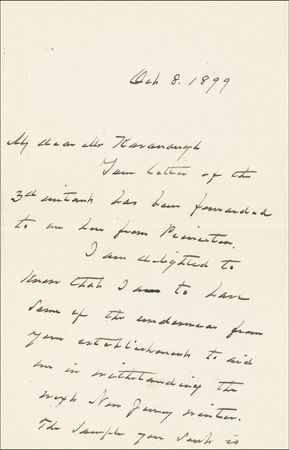 Oct 8. 1899
My dear Mr Kavanaugh
Your letter of the
3d instant has been forwarded
to me here from Princeton.
I am delighted to
know that I am to have
some of the underwear from
your establishment to aid
me in withstanding the
next New Jersey winter.
The sample you sent is